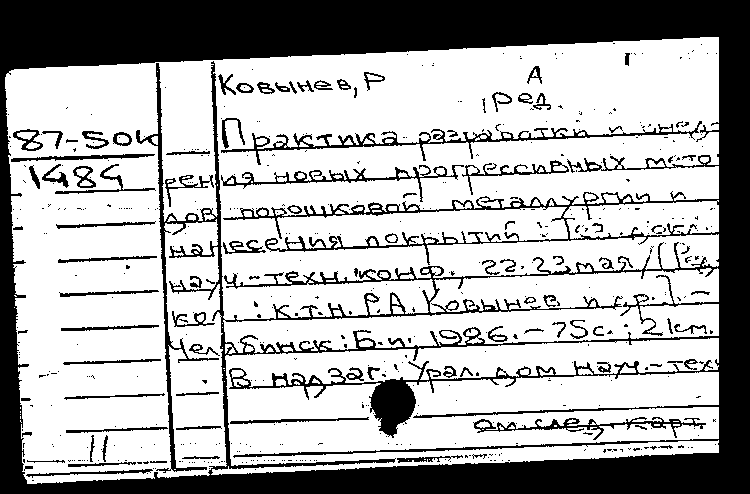 Ковынев, Р А
, ред.
87-50к Практика разработки и внед-
1484 рения новых прогрессивных мето-
дов порошковой металлургии и
нанесения покрытий : Тез. докл.
науч.-техн. конф., 22-23 мая / [Ред.
кол.: к.т.н. Р.А. Ковынев и др.]. –
Челябинск : Б.и., 1986. – 75 с. ; 21 см.
В надзаг.: Урал. дом науч.-техн
см. след. карт.
11